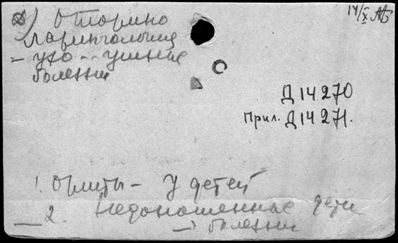 14/X
Оторино
ларингология
- ухо - ушные
болезни
Д 14270
Прил. Д 14271.
1. Отиты - У детей
2. Недоношенные дети
- болезни